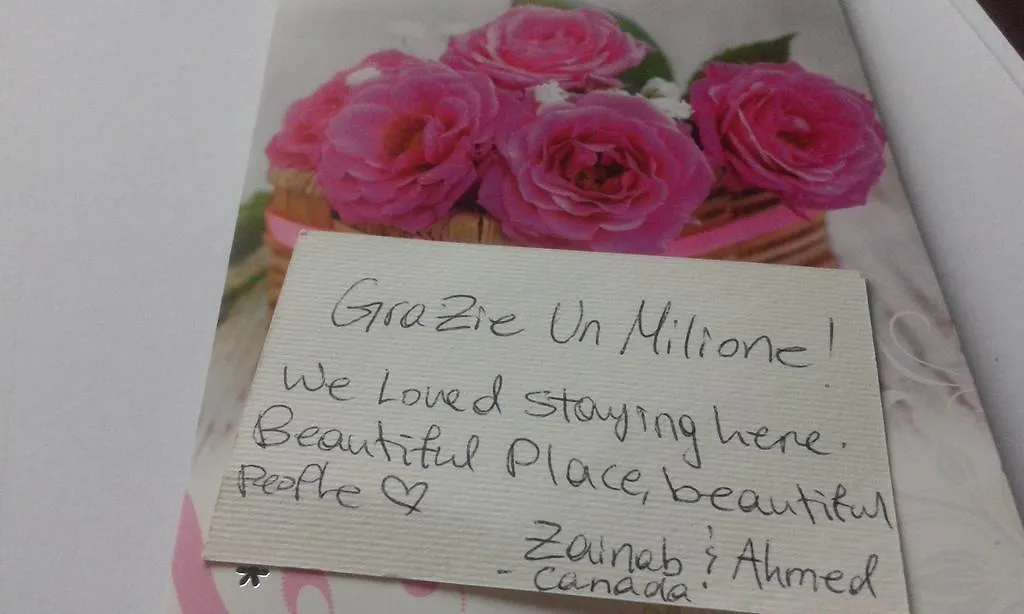 Grazie Un Milione!
We Loved staying here.
Beautiful Place, beautiful
People ♡
Zainab & Ahmed
- Canada.